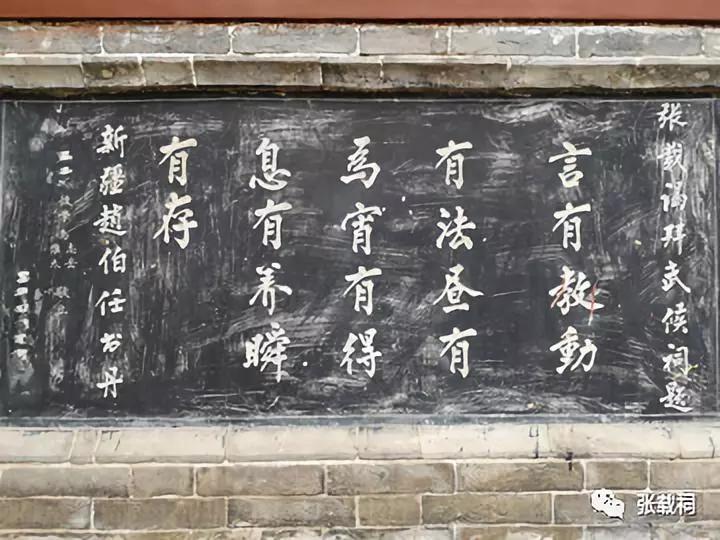 张载谒拜武侯祠题
言有教動
有法昼有
为宵有得
息有养瞬
有存
新疆趙伯任书丹
张载祠